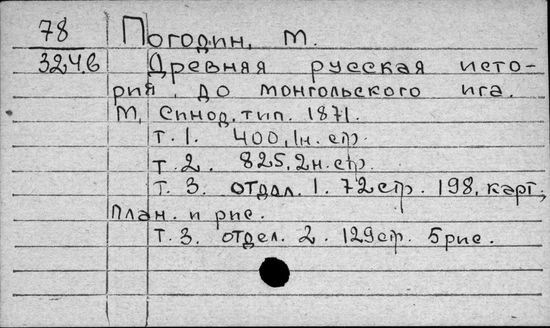 78 Погодин, М.
324б Древняя русская исто-
рия до монгольского ига.
М, Синод. тип. 1871.
т. 1. 400, 1н. стр.
т. 2. 825, 2н. стр.
т. 3. отдел. 1. 72 стр. 198, карт,
план. и рис.
т. 3. отдел. 2. 129 стр. 5 рис.